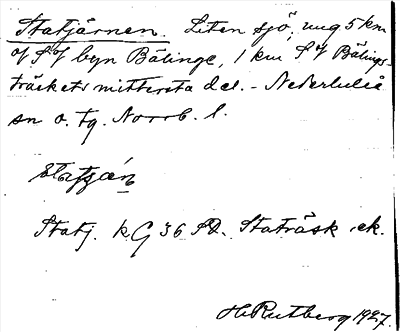 Statjärnen. Liten sjö, ung 5 km
SV byn Bälinge, 1 km SV Bälings-
träskets mittersta del. - Nederluleå
sn o. tg. Norrb. l.
Statj. kG 36 SO. Staträsk ek.
H. Rutberg 1927.